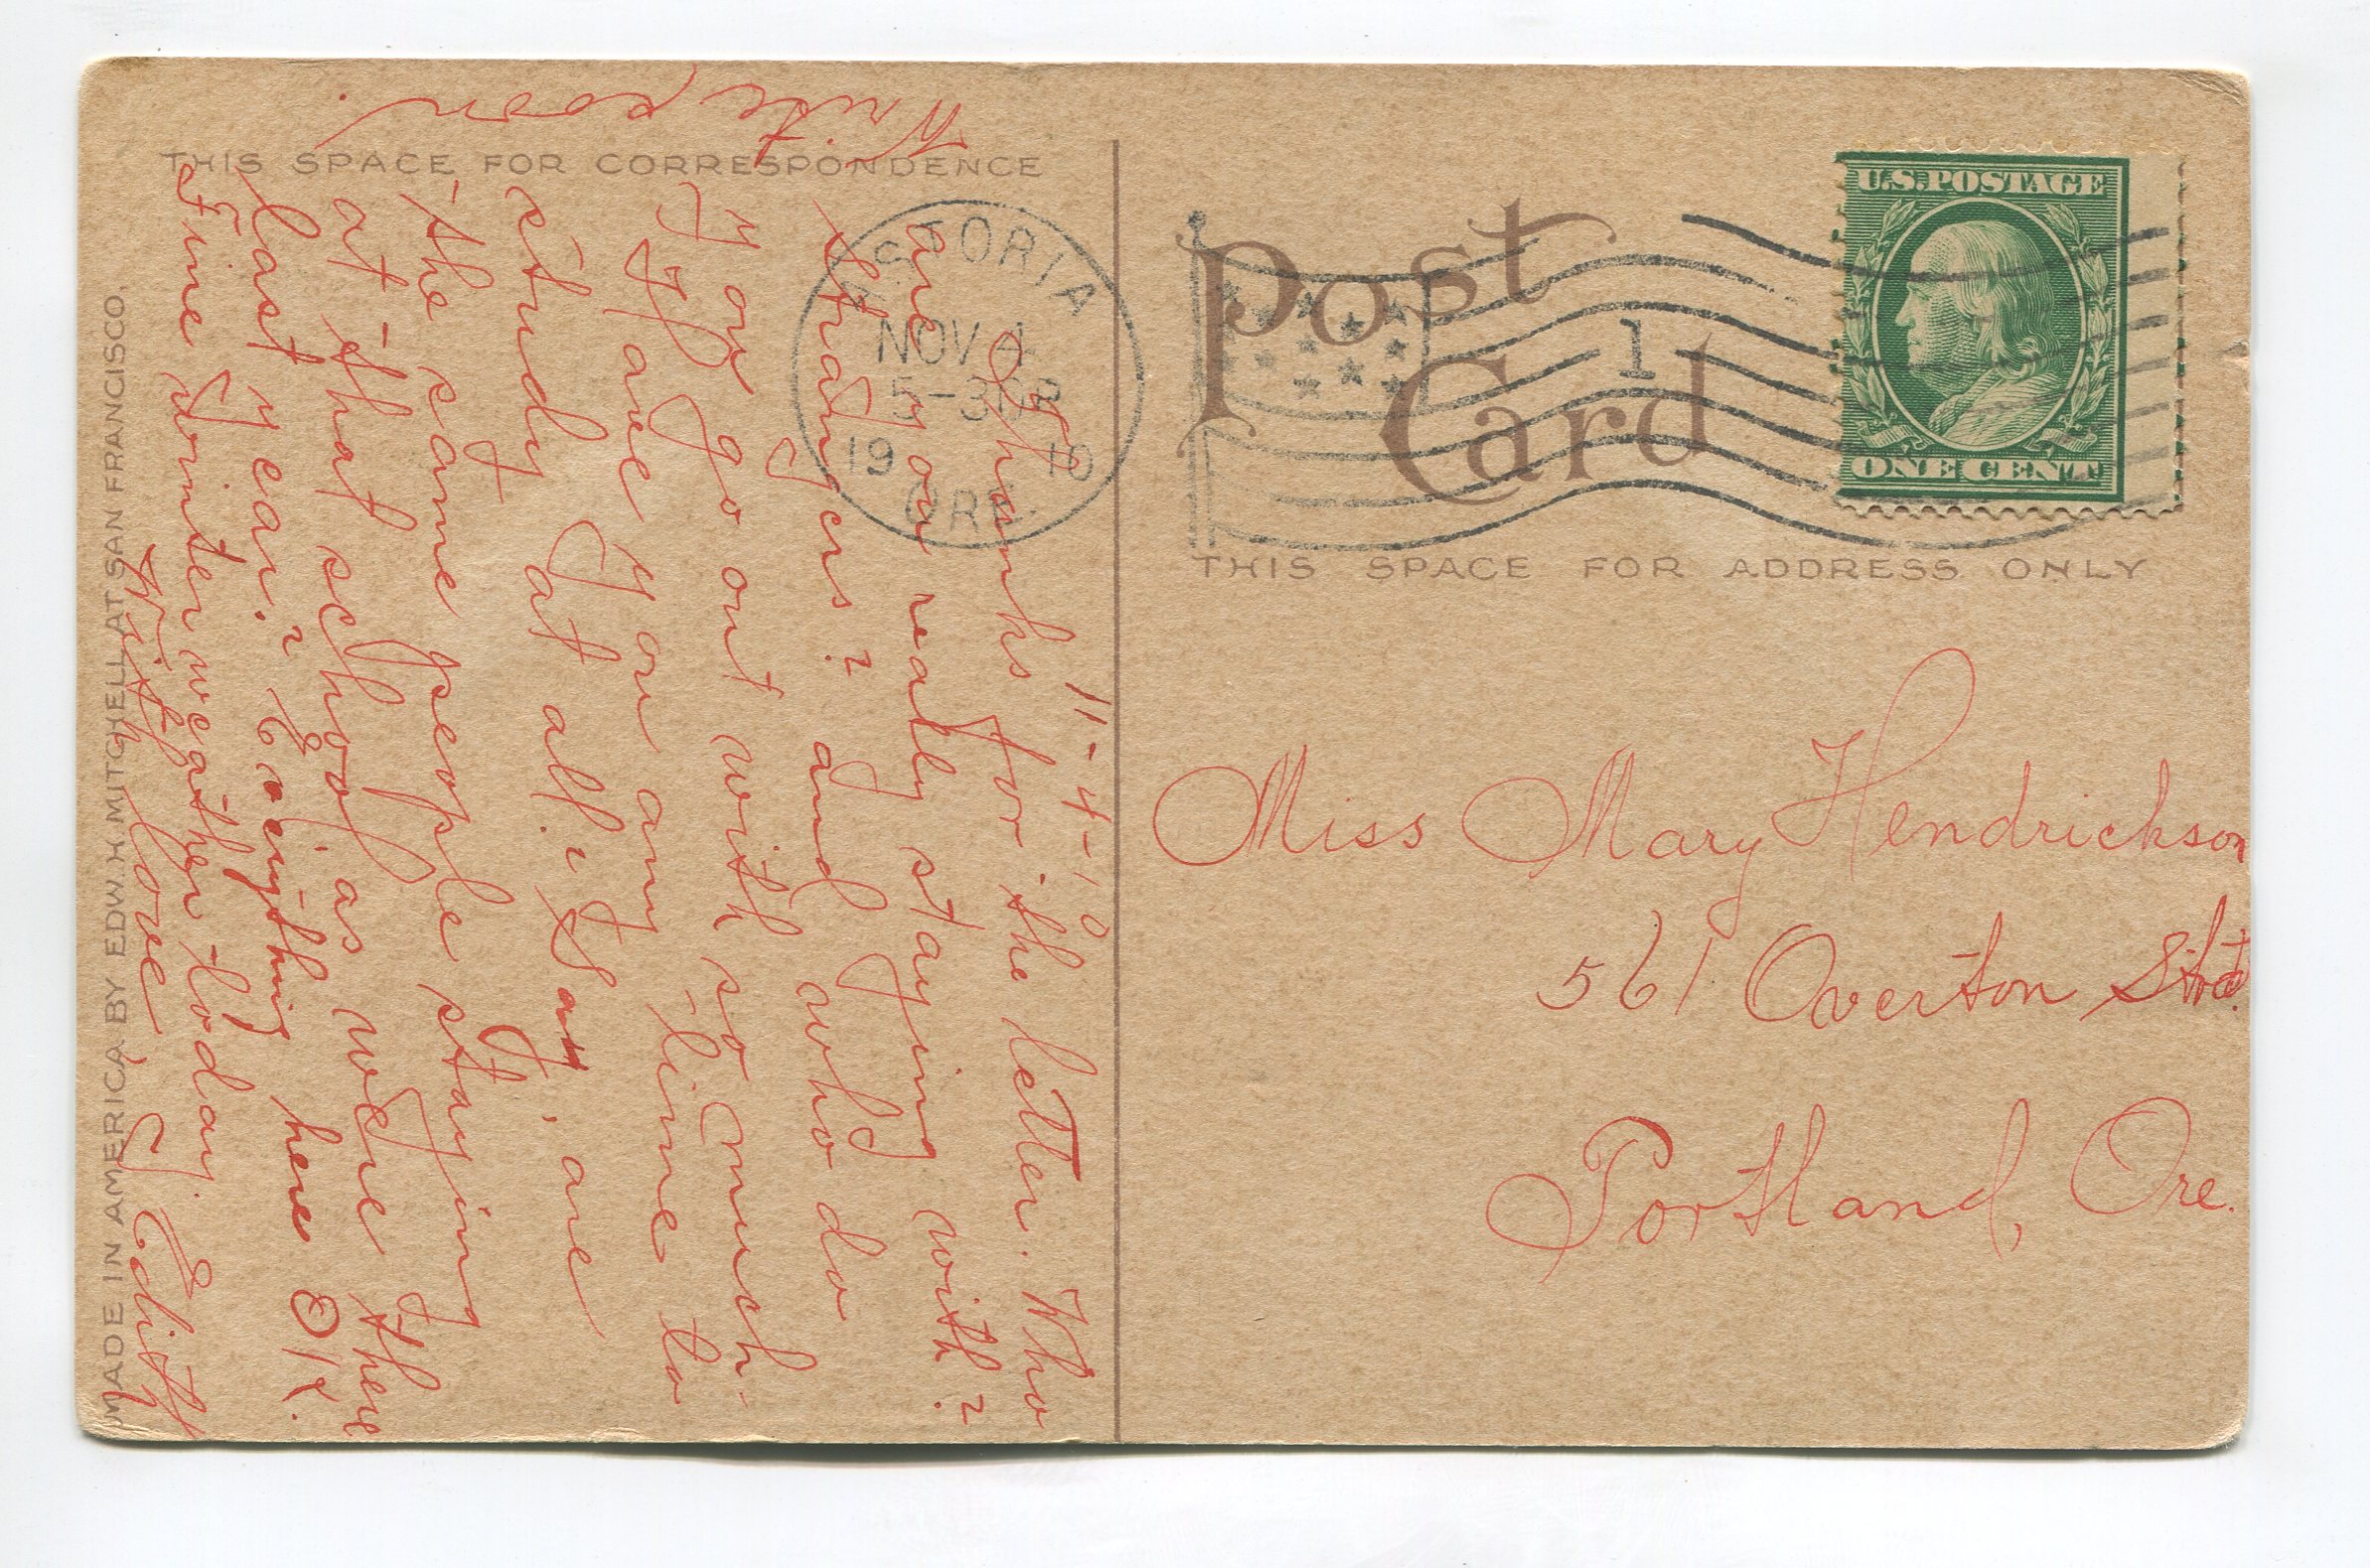 THIS SPACE FOR CORRESPONDENCE
11-4-10
Thanks for the letter. Who
are you really staying with?
Strangers? and who do
you go out with so much-
If are you any time to
study at all? Say, are
the same people staying
at that school, as were there
last year? Everything here OK.
Fine winter weather today.
With love, Edith
Write soon.
MADE IN AMERICA BY EDW. H. MITCHELL AT SAN FRANCISCO.
ASTORIA
NOV 4
5-30P
1910
ORE.
Post
Card
1
U.S. POSTAGE
ONE CENT
THIS SPACE FOR ADDRESS ONLY
Miss Mary Hendrickson
561 Overton
Portland, Ore.